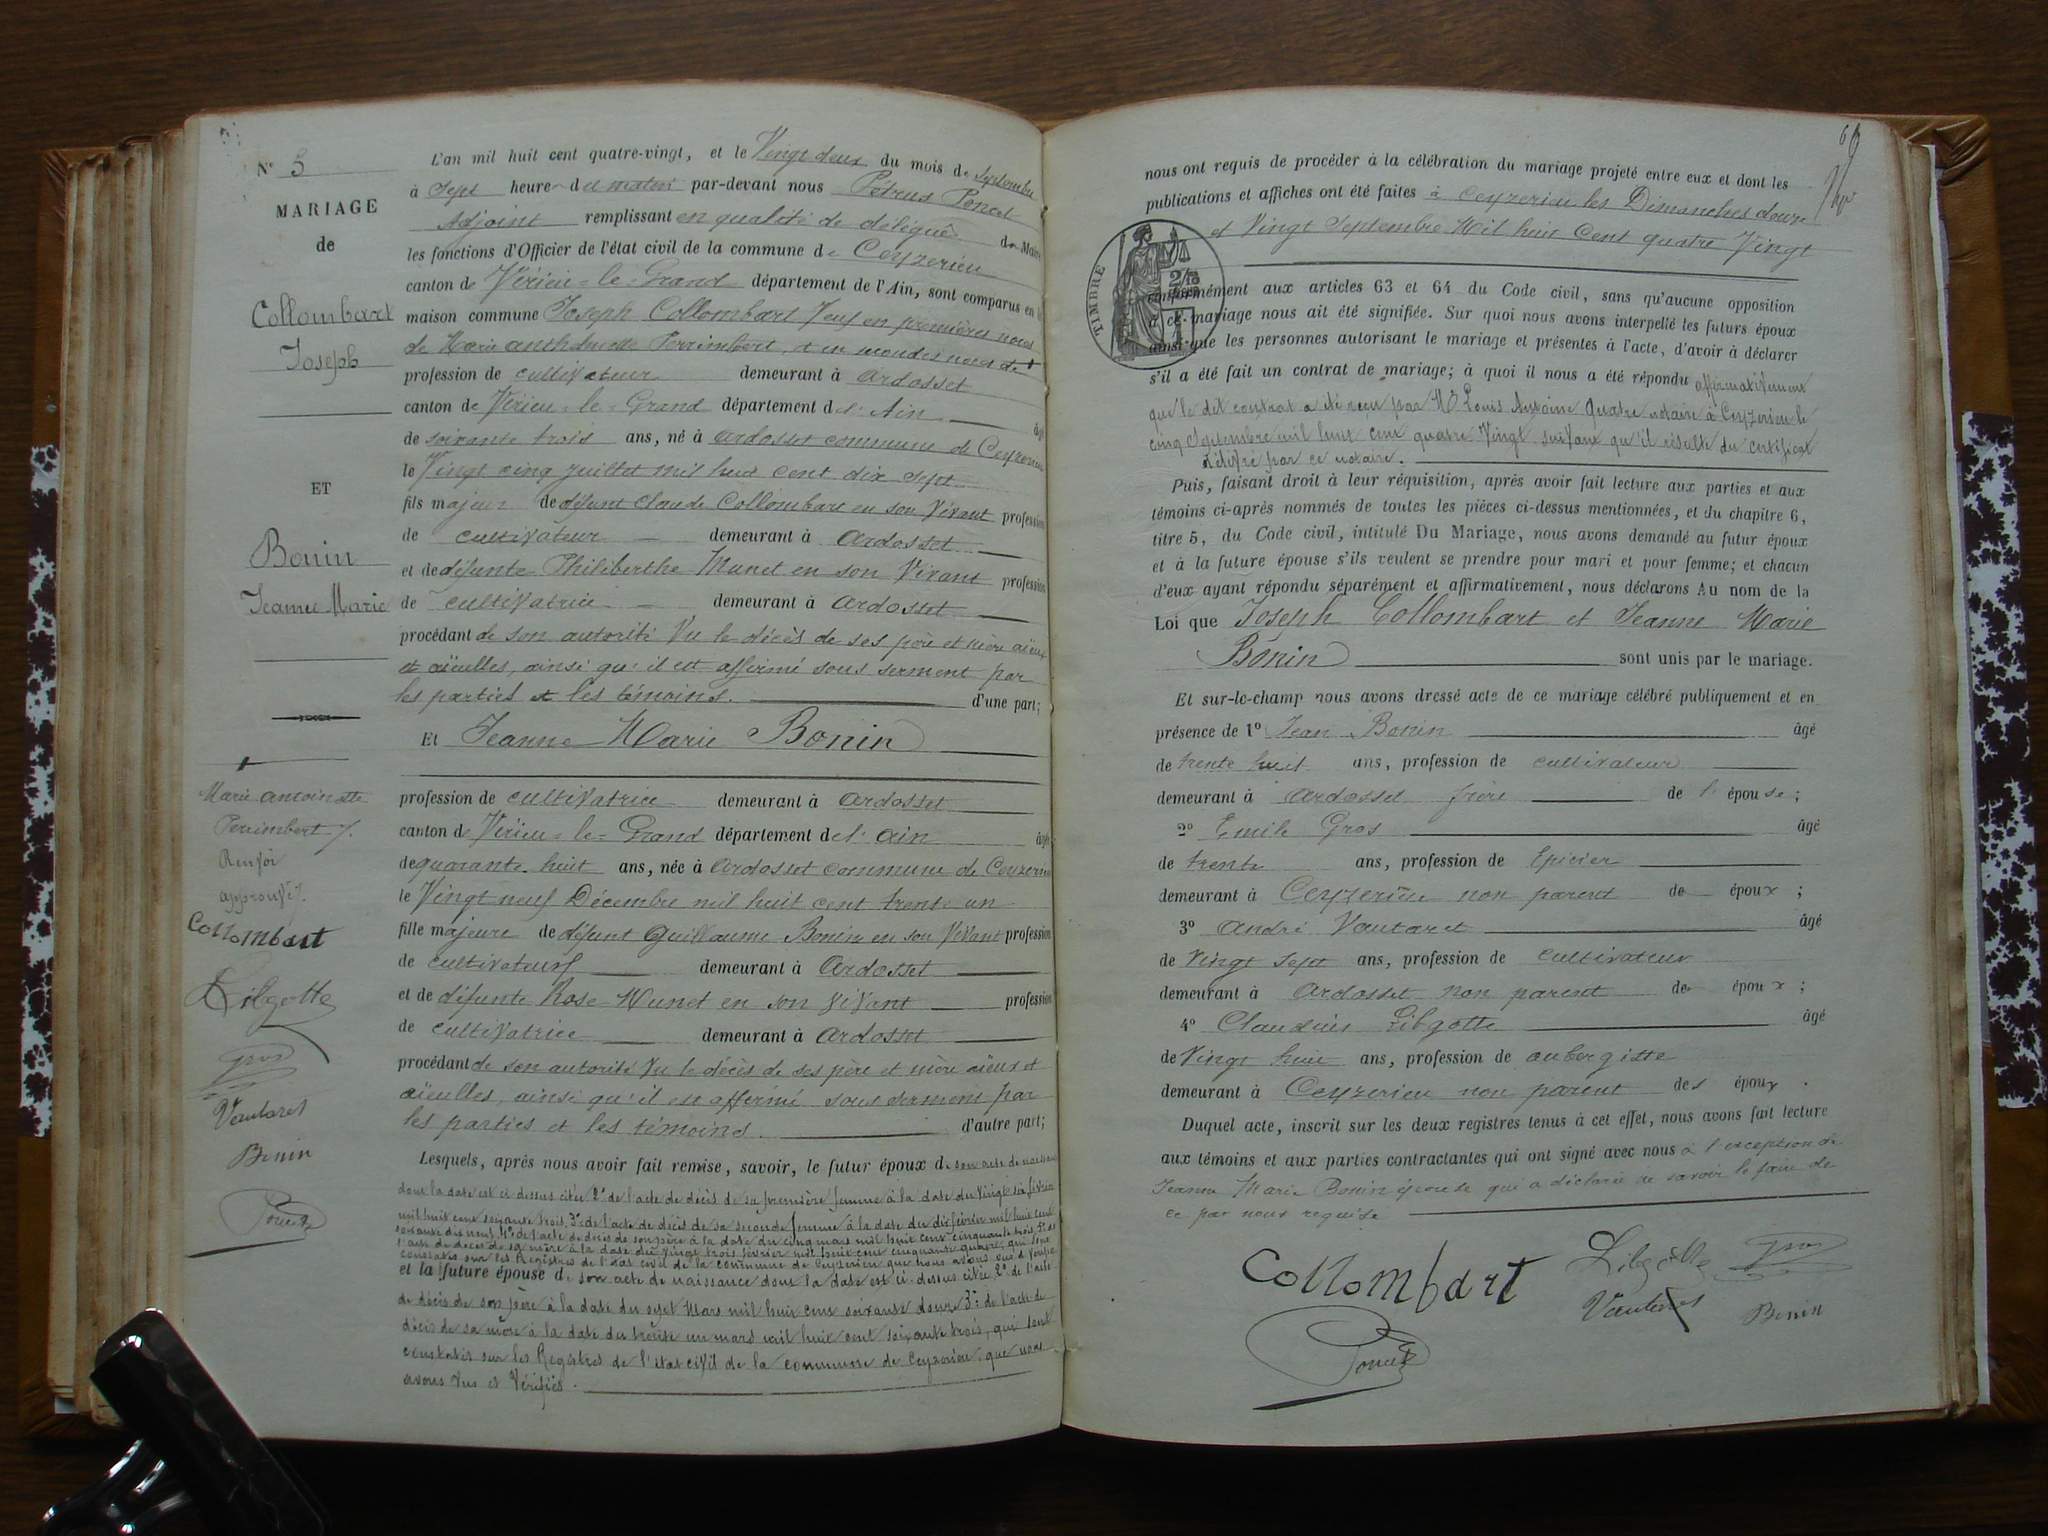 N° 5
MARIAGE
de
Collombart
Joseph
ET
Bonin
Jeanne Marie
L'an mil huit cent quatre-vingt, et le Vingt deux du mois de Septembre
à Sept heure du matin par-devant nous Pétrus Poncet
Adjoint remplissant en qualité de délégué de Maire
les fonctions d'Officier de l'état civil de la commune de Ceyzerieu
canton de Virieu-le-Grand département de l'Ain, sont comparus en la
maison commune Joseph Collombart Veuf en premières noces
de Marie anthelmette Perrimbert, et en secondes noces de
profession de cultivateur demeurant à ardosset
canton de Virieu-le-Grand département de l'Ain âgé
de soixante trois ans, né à ardosset commune de Ceyzerieu
le Vingt cinq juillet mil huit cent dix sept
fils majeur de défunt Claude Collombart en son Vivant profession
de cultivateur demeurant à ardosset
et de défunte Philiberthe Munet en son Vivant profession
de cultivatrice demeurant à ardosset
procédant de son autorité Vu le décès de ses père et mère aïeux
et aïeulles, ainsi qu'il est affirmé sous serment par
les parties et les témoins. d'une part;
Et Jeanne Marie Bonin
profession de cultivatrice demeurant à ardosset
canton de Virieu-le-Grand département de l'ain âgée
de quarante huit ans, née à ardosset commune de Ceyzerieu
le Vingt neuf Décembre mil huit cent trente un
fille majeure de défunt Guillaume Bonin en son Vivant profession
de cultivateur demeurant à ardosset
et de défunte Rose Munet en son Vivant profession
de cultivatrice demeurant à ardosset
procédant de son autorité Vu le décès de ses père et mère aïeux et
aïeulles, ainsi qu'il est affirmé sous serment par
les parties et les témoins. d'autre part;
Lesquels, après nous avoir fait remise, savoir, le futur époux de son acte de naissance
dont la date est ci dessus citée 2° de l'acte de décès de sa première femme à la date du Vingt six février
mil huit cent soixante trois, 3° de l'acte de décès de sa seconde femme à la date du dix février mil huit cent
soixante dix neuf, 4° de l'acte de décès de son père à la date du cinq mars mil huit cent cinquante trois, 5° de
l'acte de décès de sa mère à la date du vingt trois février mil huit cent cinquante quatre, qui sont
constatés sur les Registres de l'état civil de la commune de Ceyzerieu que nous avons vus et Vérifiés
et la future épouse de son acte de naissance dont la date est ci-dessus citée 2° de l'acte
de décès de son père à la date du sept Mars mil huit cent soixante douze 3° de l'acte de
décès de sa mère à la date du trente un mars mil huit cent soixante trois, qui sont
constatés sur les Registres de l'état civil de la commune de Ceyzerieu, que nous
avons vus et Vérifiés.
Marie antoinette
Perrimbert
Renvoi
approuvé
Collombart
Libgotte
Gros
Vautaret
Bonin
Poncet
nous ont requis de procéder à la célébration du mariage projeté entre eux et dont les
publications et affiches ont été faites à Ceyzerieu les Dimanches douze
et Vingt Septembre Mil huit Cent quatre Vingt
TIMBRE
conformément aux articles 63 et 64 du Code civil, sans qu'aucune opposition
à ce mariage nous ait été signifiée. Sur quoi nous avons interpellé les futurs époux
ainsi que les personnes autorisant le mariage et présentes à l'acte, d'avoir à déclarer
s'il a été fait un contrat de mariage; à quoi il nous a été répondu affirmativement
que le dit contrat a été reçu par Me Louis Antoine Quatre notaire à Ceyzerieu le
cinq Septembre mil huit cent quatre Vingt suivant qu'il résulte du certificat
délivré par ce notaire.
Puis, faisant droit à leur réquisition, après avoir fait lecture aux parties et aux
témoins ci-après nommés de toutes les pièces ci-dessus mentionnées, et du chapitre 6,
titre 5, du Code civil, intitulé Du Mariage, nous avons demandé au futur époux
et à la future épouse s'ils veulent se prendre pour mari et pour femme; et chacun
d'eux ayant répondu séparément et affirmativement, nous déclarons Au nom de la
Loi que Joseph Collombart et Jeanne Marie
Bonin sont unis par le mariage.
Et sur-le-champ nous avons dressé acte de ce mariage célébré publiquement et en
présence de 1° Jean Bonin âgé
de trente huit ans, profession de cultivateur
demeurant à ardosset frère de l'épouse;
2° Emile Gros âgé
de trente ans, profession de Epicier
demeurant à Ceyzerieu non parent de époux;
3° André Vautaret âgé
de Vingt Sept ans, profession de cultivateur
demeurant à ardosset non parent des époux;
4° Claudius Libgotte âgé
de Vingt huit ans, profession de aubergiste
demeurant à Ceyzerieu non parent des époux.
Duquel acte, inscrit sur les deux registres tenus à cet effet, nous avons fait lecture
aux témoins et aux parties contractantes qui ont signé avec nous à l'exception de
Jeanne Marie Bonin épouse qui a déclaré ne savoir le faire de
ce par nous requise
Collombart
Libgotte
Gros
Vautaret
Bonin
Poncet